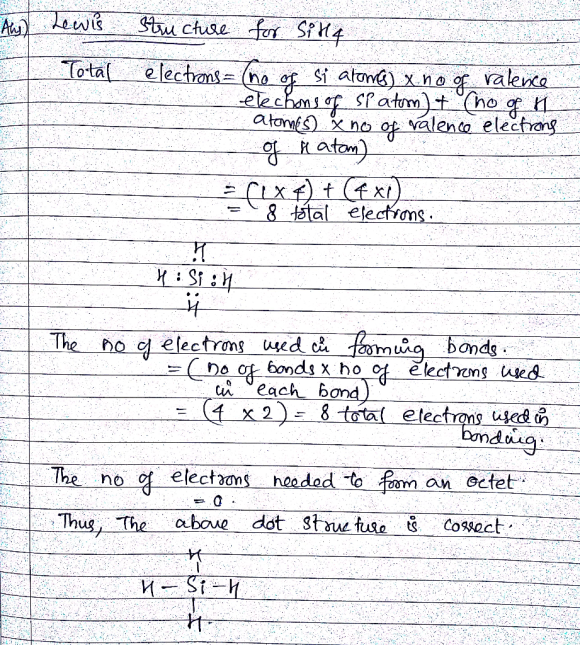 Ans) Lewis Structure for SiH4
Total electrons = (no of Si atom(s) x no of valence
electrons of Si atom) + (no of H
atom(s) x no of valence electrons
of H atom)
= (1 x 4) + (4 x 1)
= 8 total electrons.
H
H : Si : H
H
The no of electrons used in forming bonds.
= (no of bonds x no of electrons used
in each bond)
= (4 x 2) = 8 total electrons used in
bonding.
The no of electrons needed to form an octet.
= 0.
Thus, The above dot structure is correct.
H
H - Si - H
H.